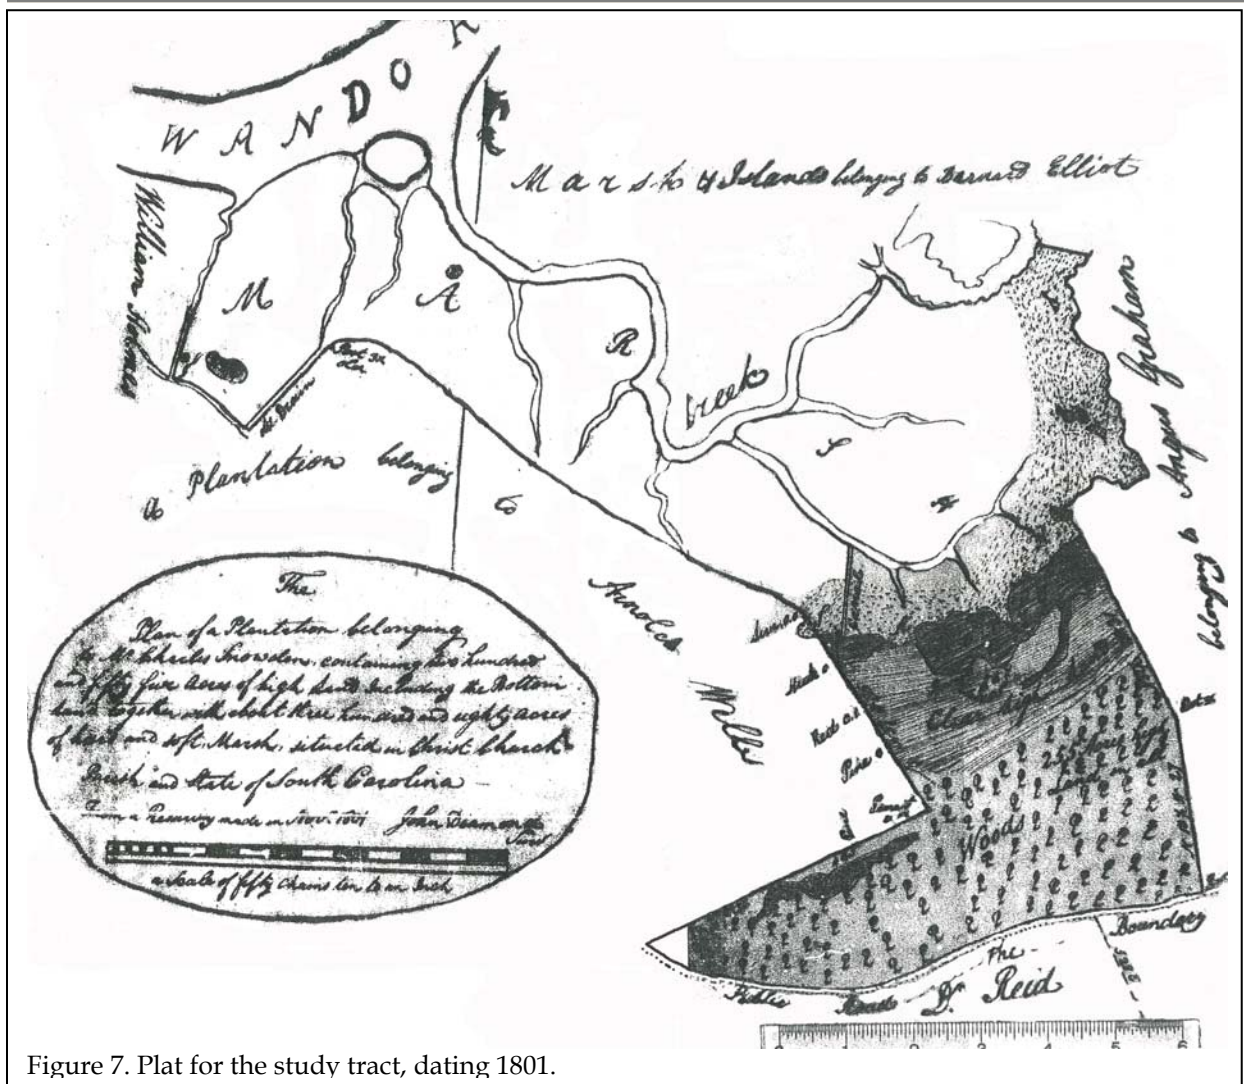 WANDO R
Marsh & Islands belonging to Barnard Elliot
William
M
A
R
S
Creek
Angus Graham
belonging to
a Plantation belonging
to
Arnold Wells
The
Plan of a Plantation belonging
to Mr. Charles Snowden, containing two hundred
and fifty five acres of high land Including the Bottom
land together with about three hundred and eighty acres
of hard and soft Marsh, situated in Christ Church
Parish and State of South Carolina
From a Resurvey made in Novr. 1801 John Diamond
Surv
a Scale of fifty Chains ten to an Inch
Red oak
Pine
Clear high land
Woods
Public Road
The
Boundary
Dr. Reid
1 2 3 4 5 6
Figure 7. Plat for the study tract, dating 1801.